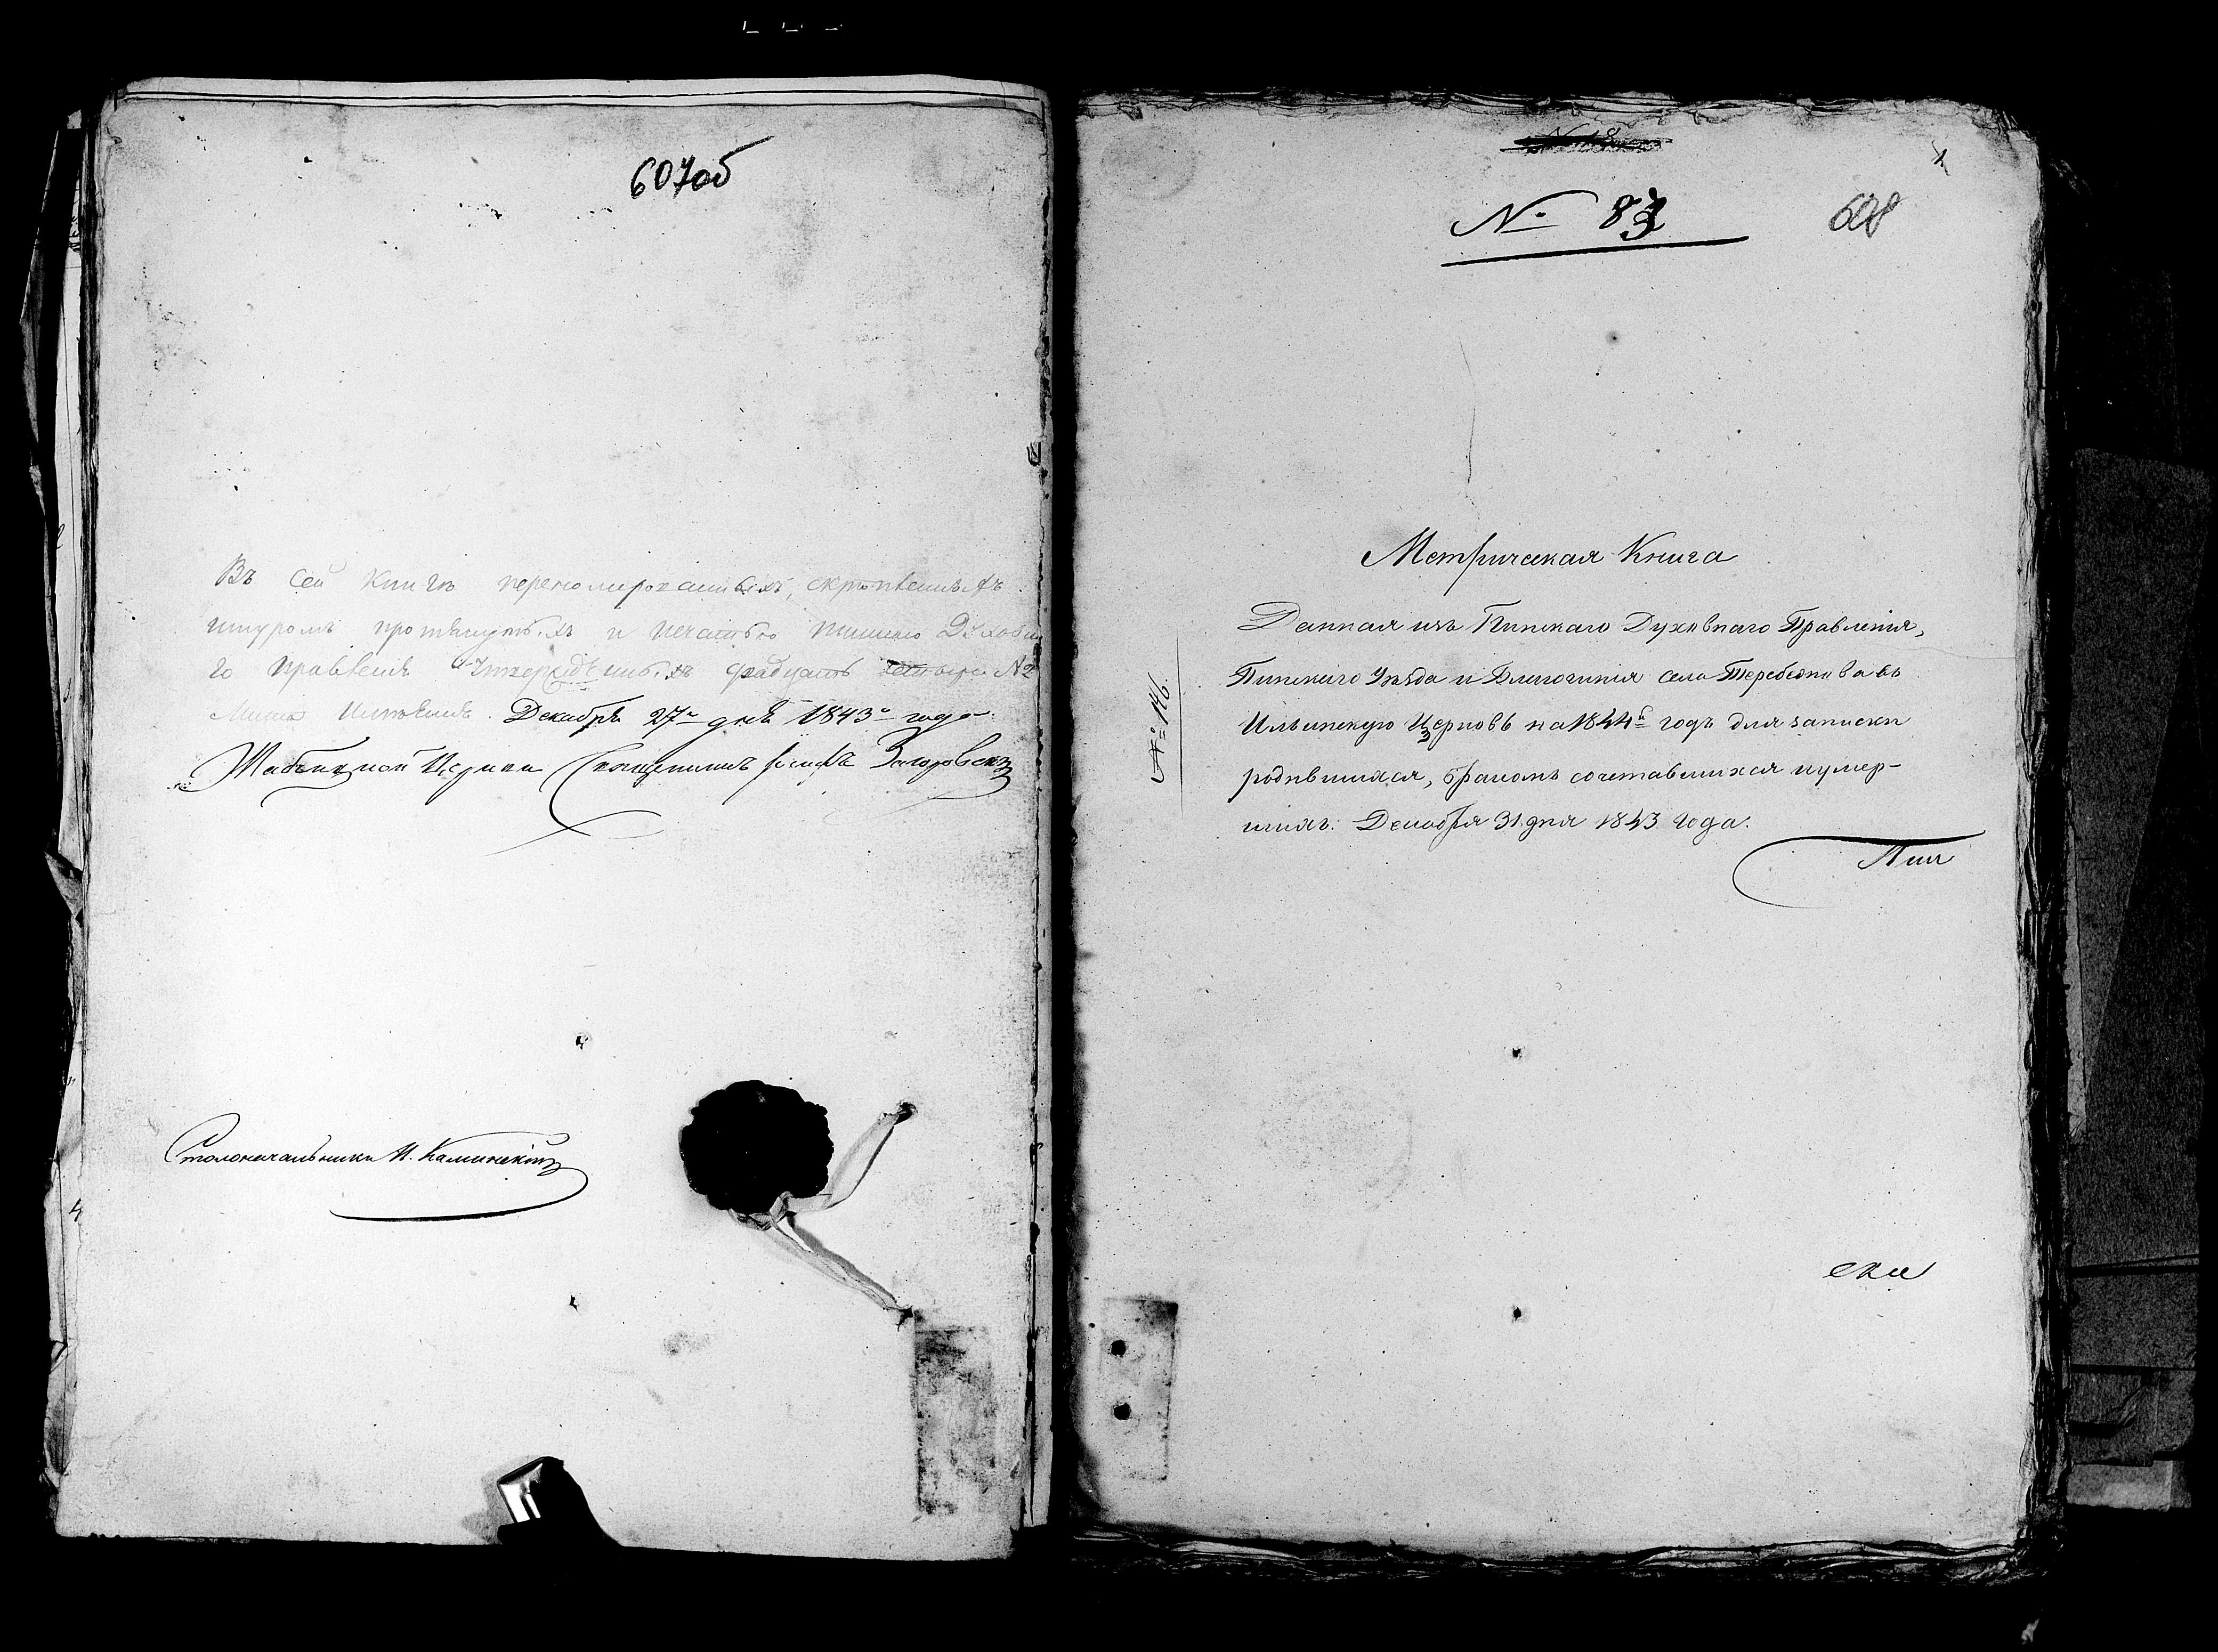 607об
Въ сей книгѣ перенумерованныхъ, скрѣпленныхъ
шнуромъ протянутыхъ и печатью Пинскаго Духовна
го Правленія утвержденныхъ двадцать четыре
Декабря 27го дня 1843го года.
Жабчицкой Церкви Священникъ Загоровскій
Столоначальникъ И. Каминскій
1
№ 83
608
№ 146.
Метрическая Книга
Данная изъ Пинскаго Духовнаго Правленія,
Пинскаго Уѣзда и Благочинія села Теребежова въ
Ильинскую Церковь на 1844й годъ для записки
родившихся, бракомъ сочетавшихся и умер-
шихъ. Декабря 31 дня 1843 года.
Пин
ска